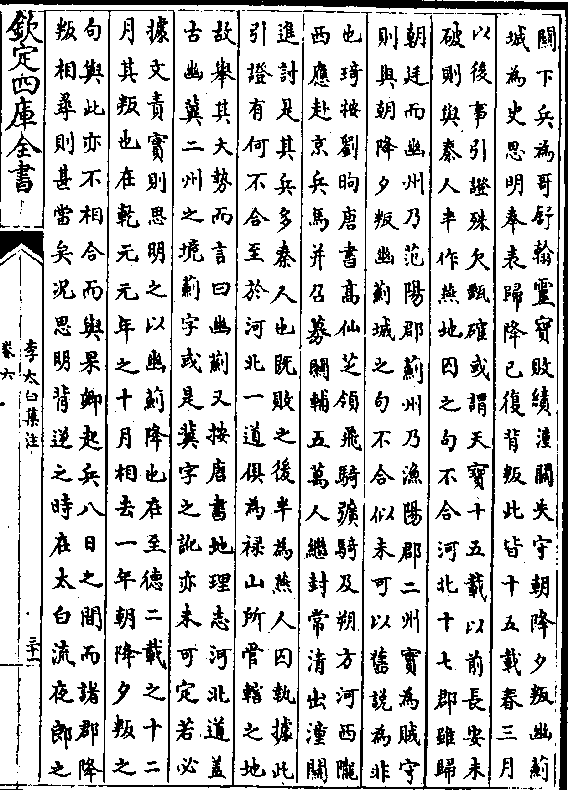 關下兵為哥舒翰靈寶敗績潼關失守朝降夕叛幽薊
城為史思明奉表歸降已復背叛此皆十五載春三月
以後事引證殊欠甄確或謂天寶十五載以前長安未
破則與秦人半作燕地囚之句不合河北十七郡雖歸
朝廷而幽州乃范陽郡薊州乃漁陽郡二州實為賊守
則與朝降夕叛幽薊城之句不合似未可以舊說為非
也琦按劉昫唐書高仙芝領飛騎彍騎及朔方河西隴
西應赴京兵馬并召募關輔五萬人繼封常清出潼關
進討是其兵多秦人也既敗之後半為燕人囚執據此
引證有何不合至於河北一道俱為祿山所管轄之地
故舉其大勢而言曰幽薊又按唐書地理志河北道蓋
古幽冀二州之境薊字或是冀字之訛亦未可定若必
據文責實則思明之以幽薊降也在至德二載之十二
月其叛也在乾元元年之十月相去一年朝降夕叛之
句與此亦不相合而與杲卿起兵八日之間而諸郡降
叛相尋則甚當矣況思明背逆之時在太白流夜郎之
欽定四庫全書
李太白集注
卷六
三十一